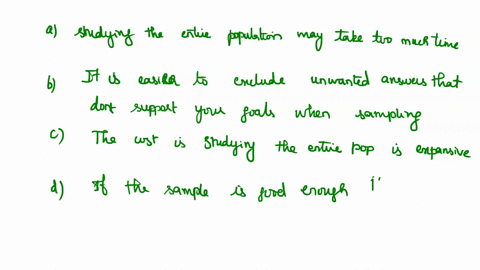 a) studying the entire population may take too much time
b) It is easier to exclude unwanted answers that
dont support your goals when sampling
c) The cost is studying the entire pop is expensive
d) If the sample is good enough i